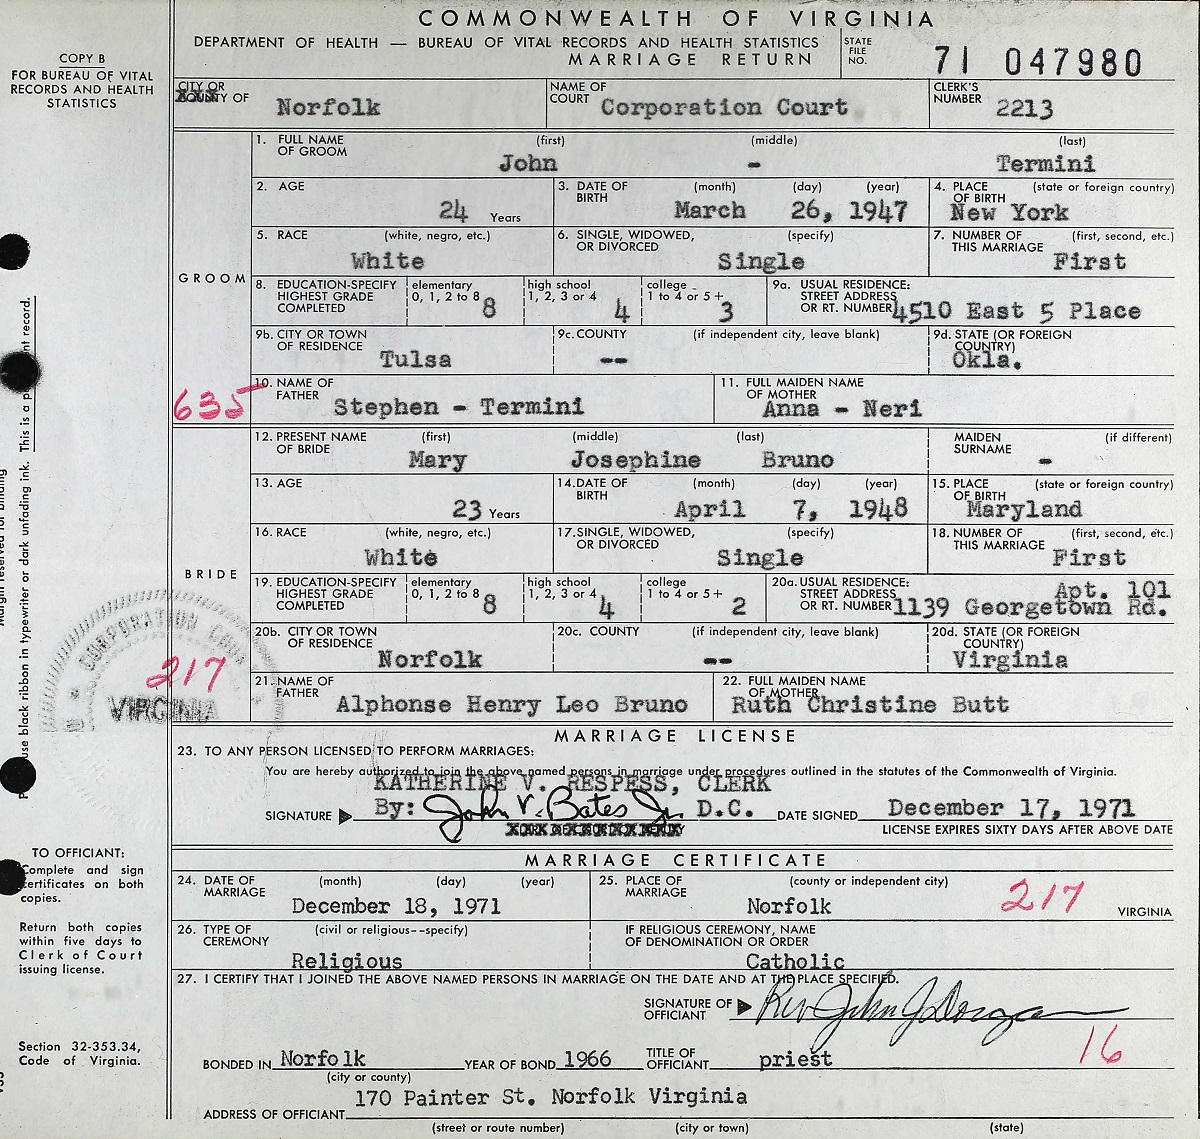 COMMONWEALTH OF VIRGINIA
DEPARTMENT OF HEALTH — BUREAU OF VITAL RECORDS AND HEALTH STATISTICS
MARRIAGE RETURN
STATE FILE NO. 71 047980
COPY B
FOR BUREAU OF VITAL
RECORDS AND HEALTH
STATISTICS
CITY OR COUNTY OF Norfolk
NAME OF COURT Corporation Court
CLERK'S NUMBER 2213
GROOM
1. FULL NAME OF GROOM (first) John (middle) - (last) Termini
2. AGE 24 Years
3. DATE OF BIRTH (month) March (day) 26, (year) 1947
4. PLACE OF BIRTH (state or foreign country) New York
5. RACE (white, negro, etc.) White
6. SINGLE, WIDOWED, OR DIVORCED (specify) Single
7. NUMBER OF THIS MARRIAGE (first, second, etc.) First
8. EDUCATION-SPECIFY HIGHEST GRADE COMPLETED elementary 0, 1, 2 to 8 8 high school 1, 2, 3 or 4 4 college 1 to 4 or 5+ 3
9a. USUAL RESIDENCE: STREET ADDRESS OR RT. NUMBER 4510 East 5 Place
9b. CITY OR TOWN OF RESIDENCE Tulsa
9c. COUNTY (if independent city, leave blank) --
9d. STATE (OR FOREIGN COUNTRY) Okla.
635
10. NAME OF FATHER Stephen - Termini
11. FULL MAIDEN NAME OF MOTHER Anna - Neri
BRIDE
12. PRESENT NAME OF BRIDE (first) Mary (middle) Josephine (last) Bruno
MAIDEN SURNAME (if different) -
13. AGE 23 Years
14. DATE OF BIRTH (month) April (day) 7, (year) 1948
15. PLACE OF BIRTH (state or foreign country) Maryland
16. RACE (white, negro, etc.) White
17. SINGLE, WIDOWED, OR DIVORCED (specify) Single
18. NUMBER OF THIS MARRIAGE (first, second, etc.) First
19. EDUCATION-SPECIFY HIGHEST GRADE COMPLETED elementary 0, 1, 2 to 8 8 high school 1, 2, 3 or 4 4 college 1 to 4 or 5+ 2
20a. USUAL RESIDENCE: STREET ADDRESS OR RT. NUMBER Apt. 101 1139 Georgetown Rd.
20b. CITY OR TOWN OF RESIDENCE Norfolk
20c. COUNTY (if independent city, leave blank) --
20d. STATE (OR FOREIGN COUNTRY) Virginia
CORPORATION
217
VIRGINIA
21. NAME OF FATHER Alphonse Henry Leo Bruno
22. FULL MAIDEN NAME OF MOTHER Ruth Christine Butt
MARRIAGE LICENSE
23. TO ANY PERSON LICENSED TO PERFORM MARRIAGES:
You are hereby authorized to join the above named persons in marriage under procedures outlined in the statutes of the Commonwealth of Virginia.
KATHERINE V. RESPESS, CLERK
SIGNATURE By: John V. Bates Jr. D.C.
DATE SIGNED December 17, 1971
LICENSE EXPIRES SIXTY DAYS AFTER ABOVE DATE
MARRIAGE CERTIFICATE
24. DATE OF MARRIAGE (month) (day) (year) December 18, 1971
25. PLACE OF MARRIAGE (county or independent city) Norfolk 217 VIRGINIA
26. TYPE OF CEREMONY (civil or religious--specify) Religious
IF RELIGIOUS CEREMONY, NAME OF DENOMINATION OR ORDER Catholic
27. I CERTIFY THAT I JOINED THE ABOVE NAMED PERSONS IN MARRIAGE ON THE DATE AND AT THE PLACE SPECIFIED.
SIGNATURE OF OFFICIANT Rev John J Dorgan
16
BONDED IN Norfolk (city or county) YEAR OF BOND 1966 TITLE OF OFFICIANT priest
ADDRESS OF OFFICIANT 170 Painter St. Norfolk Virginia
(street or route number) (city or town) (state)
TO OFFICIANT:
Complete and sign
certificates on both
copies.
Return both copies
within five days to
Clerk of Court
issuing license.
Section 32-353.34,
Code of Virginia.
use black ribbon in typewriter or dark unfading ink. This is a record.
Margin reserved for binding